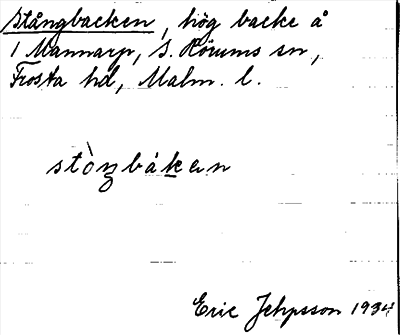 Stångbacken, hög backe å
1 Mannarp, S. Rörums sn,
Frosta hd, Malm. l.
stòŋbàken
Eric Jehpsson 1934